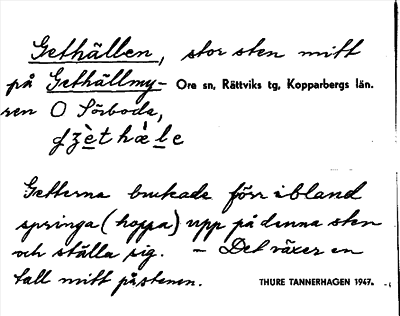 Gethällen, stor sten mitt
på Gethällmy- Ore sn, Rättviks tg, Kopparbergs län.
ren O Sörboda,
Getterna brukade förr ibland
springa (hoppa) upp på denna sten
och ställa sig. - Det växer en
tall mitt på stenen. THURE TANNERHAGEN 1947.